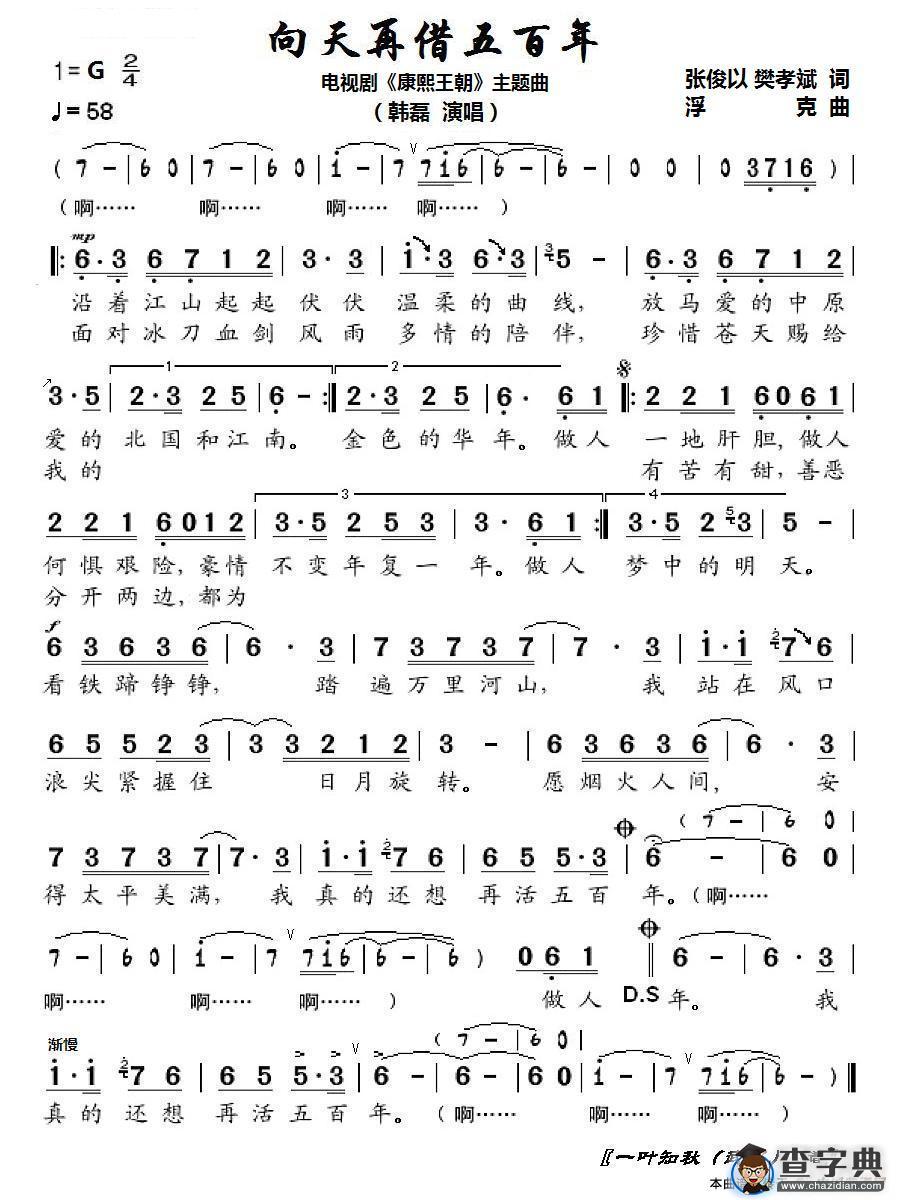 向天再借五百年
1=G 2/4
电视剧《康熙王朝》主题曲
张俊以 樊孝斌 词
♩=58
（韩磊 演唱）
浮 克 曲
( 7 - | 6 0 | 7 - | 6 0 | i - | 7 7i6 | 6 - | 6 - | 0 0 | 0 3716 ) |
（啊…… 啊…… 啊…… 啊……）
mp
‖: 6·3 6 7 1 2 | 3·3 | i·3 6·3 | 3 5 - | 6·3 6 7 1 2 |
沿着江山起起伏伏温柔的曲线，放马爱的中原
面对冰刀血剑风雨多情的陪伴，珍惜苍天赐给
1 2
3·5 | 2·3 2 5 | 6 - :‖ 2·3 2 5 | 6· 6 1 ‖: 2 2 1 6061 |
爱的北国和江南。金色的华年。做人一地肝胆，做人
我的 有苦有甜，善恶
3 4
2 2 1 6012 | 3·5 2 5 3 | 3· 6 1 :‖ 3·5 2 5 3 | 5 - |
何惧艰险，豪情不变年复一年。做人 梦中的明天。
分开两边，都为
f
6 3 6 3 6 | 6 · 3 | 7 3 7 3 7 | 7 · 3 | i·i 2 7 6 |
看铁蹄铮铮，踏遍万里河山，我站在风口
6 5 5 2 3 | 3 3 2 1 2 | 3 - | 6 3 6 3 6 | 6 · 3 |
浪尖紧握住日月旋转。愿烟火人间，安
( 7 - | 6 0 |
7 3 7 3 7 | 7· 3 | i·i 2 7 6 | 6 5 5·3 | 6 - | 6 0 |
得太平美满，我真的还想再活五百年。（啊……
7 - | 6 0 | i - | 7 7i6 | 6 - | 6 ) | 0 6 1 ‖ 6 - | 6 · 3 |
啊…… 啊…… 啊……） 做人 D.S 年。 我
渐慢 ( 7 - | 6 0 |
i·i 2 7 6 | 6 5 5·3 | 6 - | 6 - | 6 0 | i - | 7 7i6 | 6 - ) ‖
真的还想再活五百年。（啊…… 啊…… 啊……）
〖一叶知秋（
查字典
www.chazidian.com
本曲